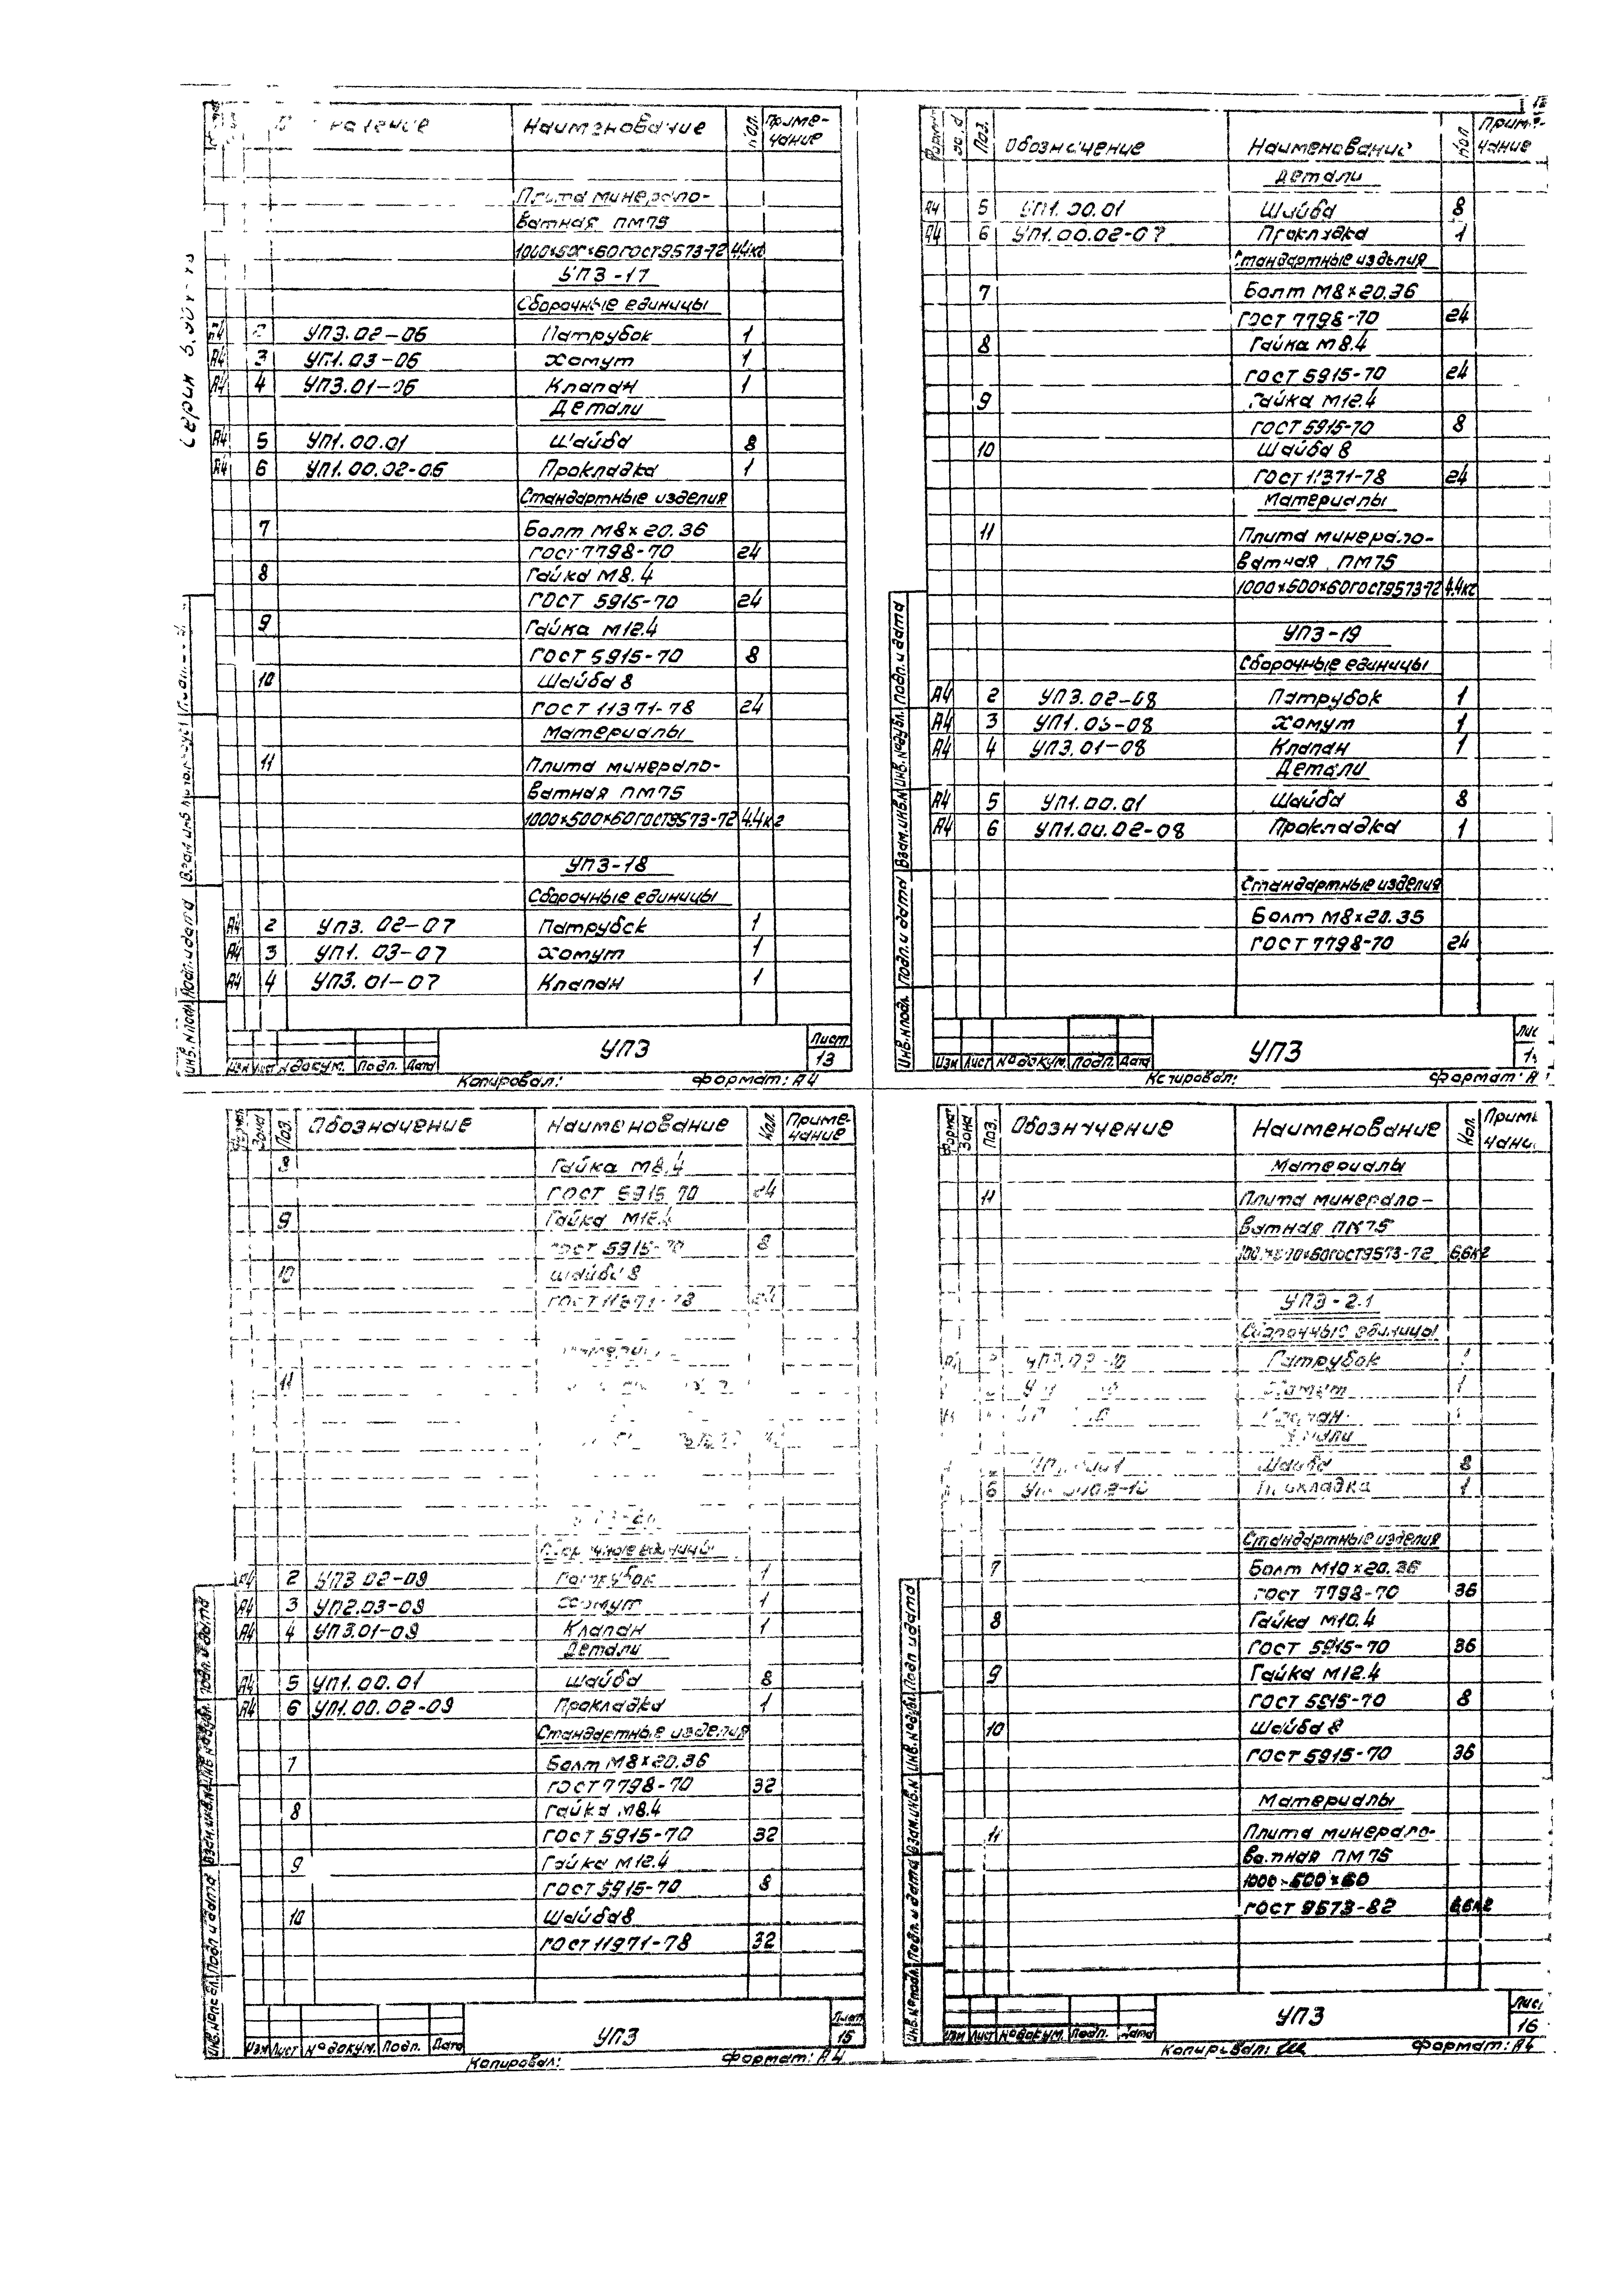 Наименование Кол. Приме-
чание
Плита минерало-
ватная ПМ75
1000×500×60ГОСТ9573-72 4.4кг
УПЗ-17
Сборочные единицы
А4 2 УПЗ.02-06 Патрубок 1
А4 3 УП1.03-06 Хомут 1
А4 4 УПЗ.01-06 Клапан 1
Детали
А4 5 УП1.00.01 Шайба 8
А4 6 УП1.00.02-06 Прокладка 1
Стандартные изделия
7 Болт М8×20.36
ГОСТ 7798-70 24
8 Гайка М8.4
ГОСТ 5915-70 24
9 Гайка М12.4
ГОСТ 5915-70 8
10 Шайба 8
ГОСТ 11371-78 24
Материалы
11 Плита минерало-
ватная ПМ75
1000×500×60ГОСТ9573-72 4.4кг
УПЗ-18
Сборочные единицы
А4 2 УПЗ.02-07 Патрубок 1
А4 3 УП1.03-07 Хомут 1
А4 4 УПЗ.01-07 Клапан 1
УПЗ
Лист
13
Изм Лист №докум. Подп. Дата
Копировал: Формат: А4
Поз. Обозначение Наименование Кол Приме-
чание
Детали
А4 5 УП1.00.01 Шайба 8
А4 6 УП1.00.02-07 Прокладка 1
Стандартные изделия
7 Болт М8×20.36
ГОСТ 7798-70 24
8 Гайка М8.4
ГОСТ 5915-70 24
9 Гайка М12.4
ГОСТ 5915-70 8
10 Шайба 8
ГОСТ 11371-78 24
Материалы
11 Плита минерало-
ватная ПМ75
1000×500×60ГОСТ9573-72 4.4кг
УПЗ-19
Сборочные единицы
А4 2 УПЗ.02-08 Патрубок 1
А4 3 УП1.03-08 Хомут 1
А4 4 УПЗ.01-08 Клапан 1
Детали
А4 5 УП1.00.01 Шайба 8
А4 6 УП1.00.02-08 Прокладка 1
Стандартные изделия
Болт М8×20.36
ГОСТ 7798-70 24
Инв.Nподл. Подп.и дата Взам.инв.N Инв.Nдубл. Подп.и дата
УПЗ
Изм Лист №докум. Подп. Дата
Копировал: Формат: А
Зона Поз. Обозначение Наименование Кол. Приме-
чание
8 Гайка М8.4
ГОСТ 5915-70 24
9 Гайка М12.4
ГОСТ 5915-70 8
10 Шайба 8
ГОСТ 11371-78 24
11
Сборочные единицы
А4 2 УПЗ.02-09 Патрубок 1
А4 3 УП2.03-09 Хомут 1
А4 4 УПЗ.01-09 Клапан 1
Детали
А4 5 УП1.00.01 Шайба 8
А4 6 УП1.00.02-09 Прокладка 1
Стандартные изделия
7 Болт М8×20.36
ГОСТ 7798-70 32
8 Гайка М8.4
ГОСТ 5915-70 32
9 Гайка М12.4
ГОСТ 5915-70 8
10 Шайба8
ГОСТ 11971-78 32
УПЗ
Лист
15
Изм Лист №докум. Подп. Дата
Копировал: Формат: А4
Формат Зона Поз. Обозначение Наименование Кол.
Материалы
11 Плита минерало-
ватная ПМ75
60ГОСТ9573-72 6,6кг
УПЗ-21
Сборочные единицы
УПЗ.02-10 Патрубок
Хомут 1
Клапан
Детали
Шайба 8
6 Прокладка 1
Стандартные изделия
7 Болт М10×20.36
ГОСТ 7798-70 36
8 Гайка М10.4
ГОСТ 5915-70 36
9 Гайка М12.4
ГОСТ 5915-70 8
10 Шайба 8
ГОСТ 5915-70 36
Материалы
11 Плита минерало-
ватная ПМ75
1000×500×60
ГОСТ 9573-82 6,6кг
Инв.Nподл. Подп.и дата Взам.инв.N Инв.Nдубл. Подп.и дата
УПЗ
16
Изм Лист №докум. Подп. Дата
Копировал: Формат: А4